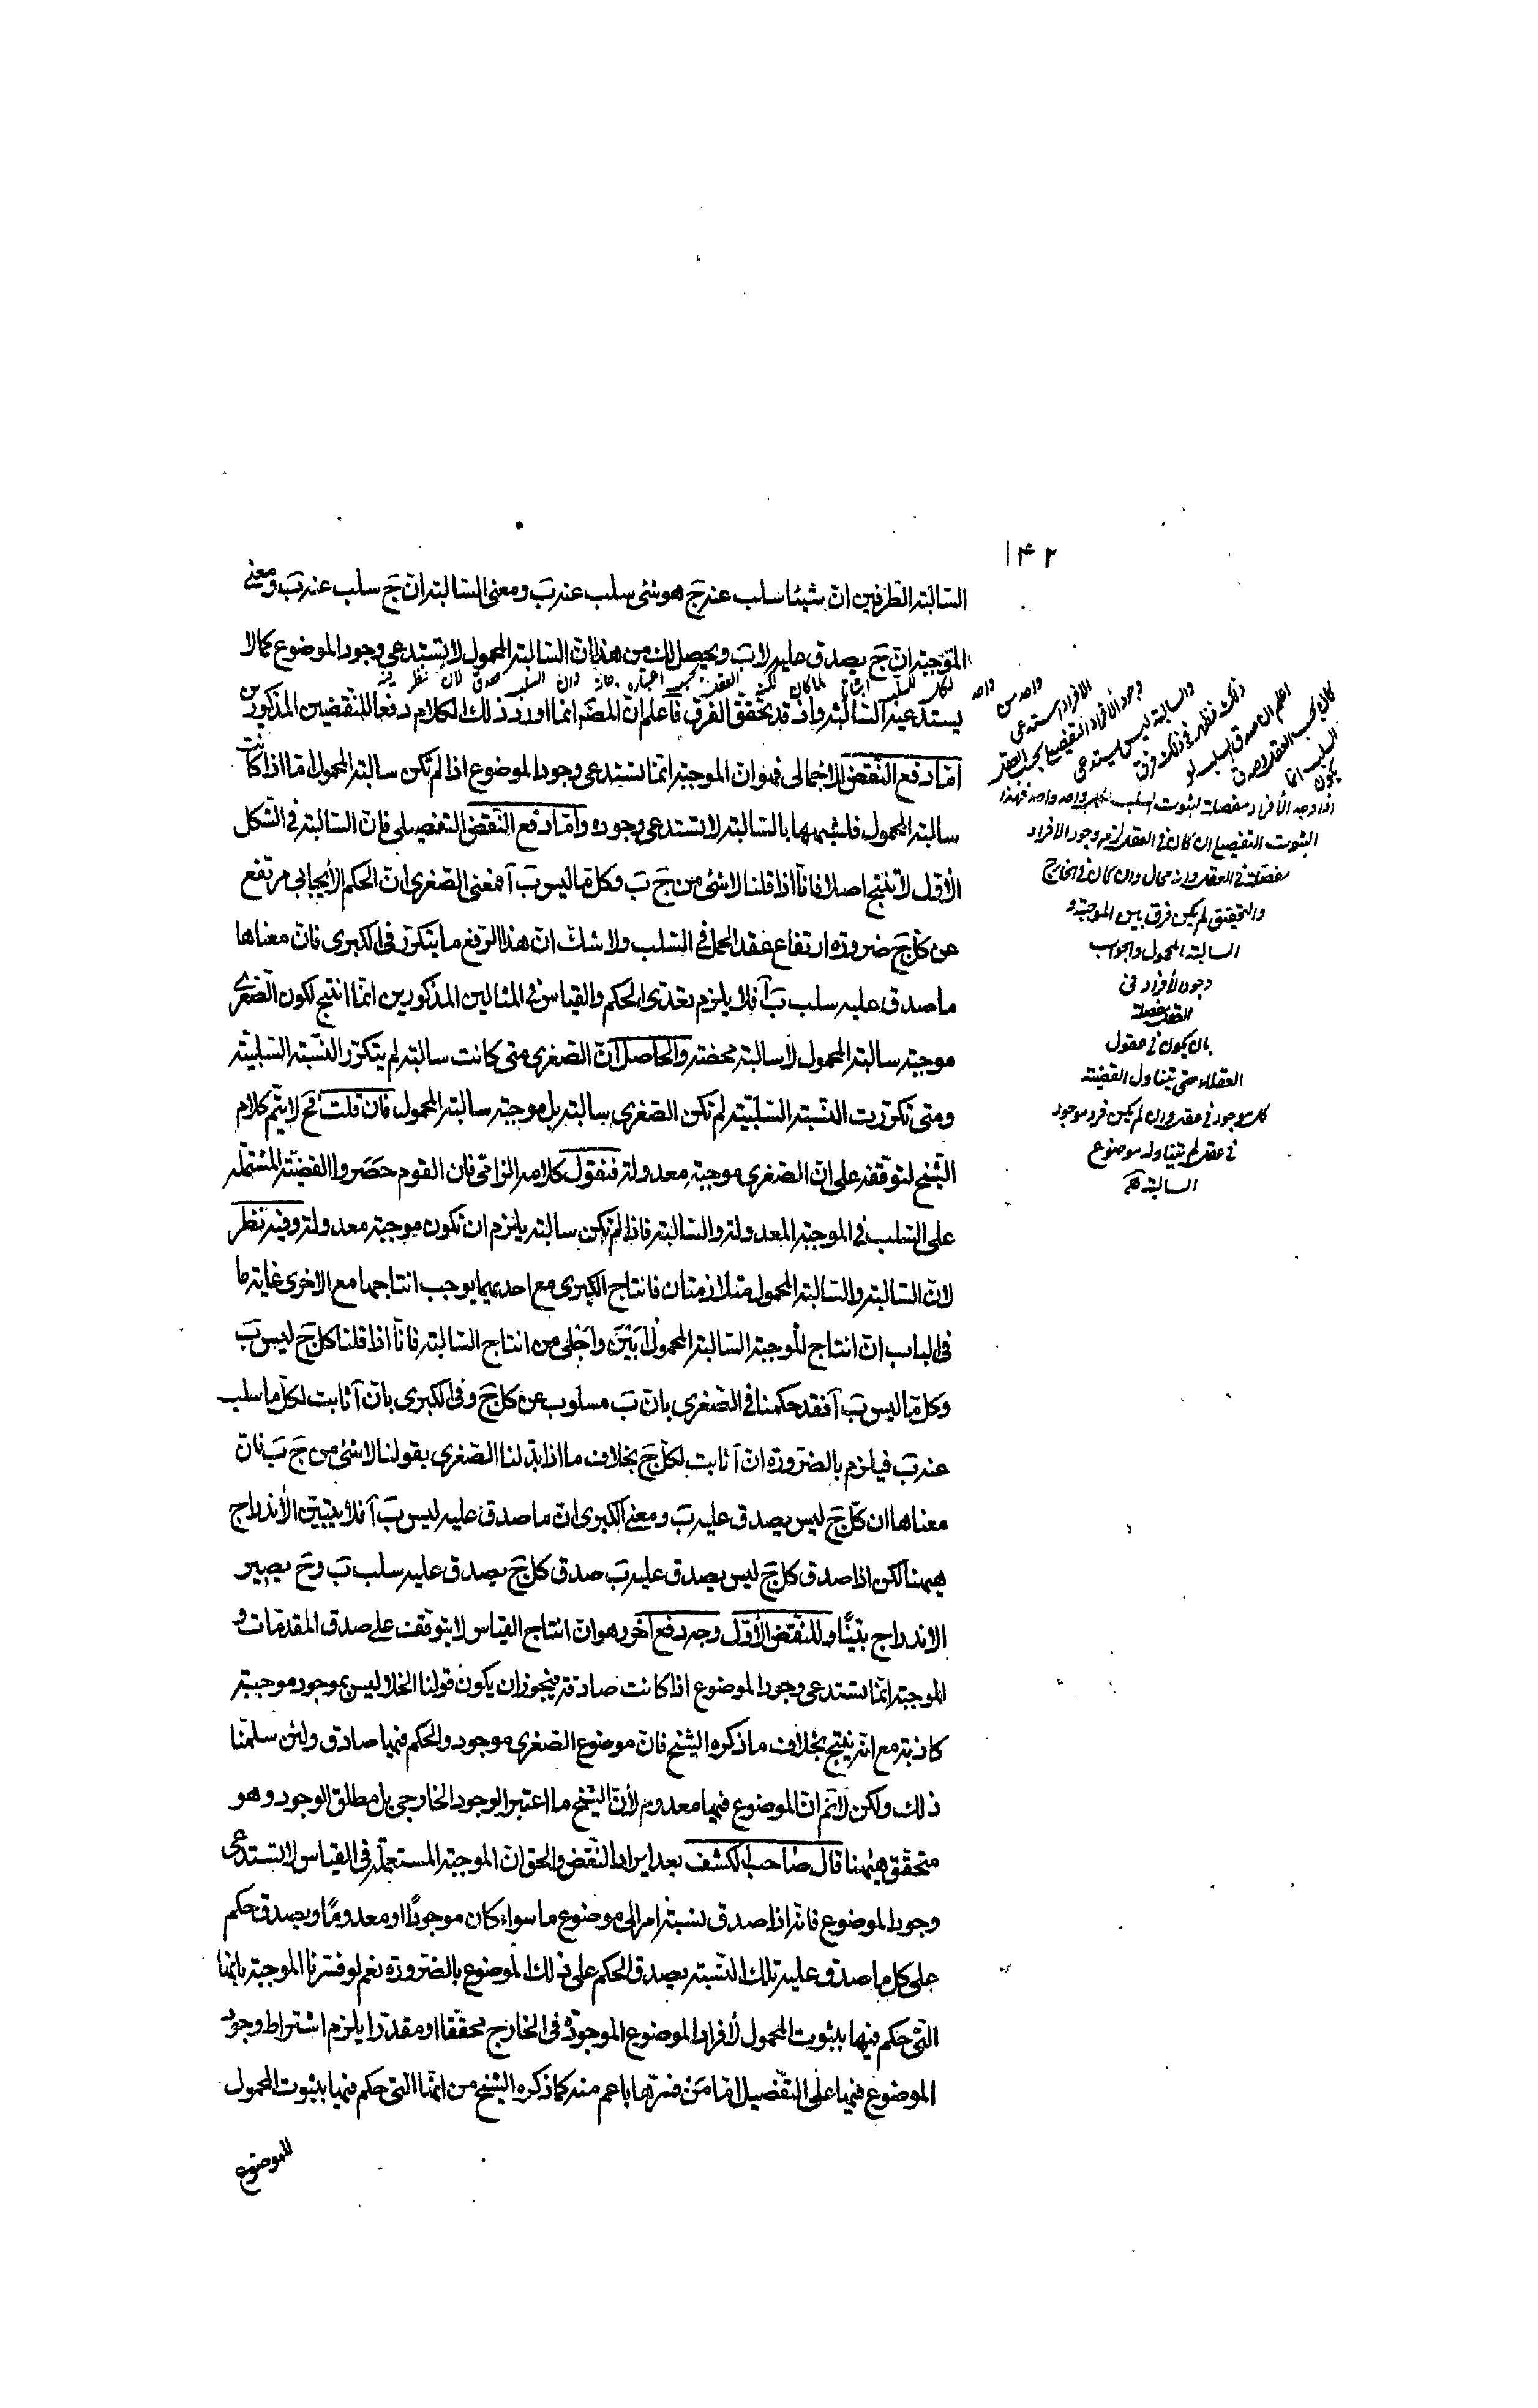 ١٤٢
السّالبة الطّرفين انّ شيئا سلب عنه جَ هو شئ سلب عنه بَ ومعنى السّالبة انّ جَ سلب عنه بَ ومعنى
الموجبة انّ جَ يصدق عليه لا بَ ويحصل لك من هذا انّ السّالبة المحمول لا تستدعى وجود الموضوع كما لا
يستدعيه السّالبة واذ قد تحقّق الفرق فاعلم انّ المصّ انّما اورد ذلك الكلام دفعا للنّقضين المذكورين
امّا دفع النّقض الاجمالى فهو انّ الموجبة انّما تستدعى وجود الموضوع اذا لم تكن سالبة المحمول امّا اذا كانت
سالبة المحمول فلشبهها بالسّالبة لا تستدعى وجوده وامّا دفع النّقض التفصيلى فانّ السّالبة فى الشّكل
الأوّل لا تنتج اصلا فانّا اذا قلنا لا شئ من جَ بَ وكلّ ما ليس بَ آ فمعنى الصّغرى انّ الحكم الأيجابى مرتفع
عن كلّ جَ ضرورة ارتفاع عقد الحمل فى السّلب ولا شكّ انّ هذا الرّفع ما يتكرّر فى الكبرى فانّ معناها
ما صدق عليه سلب بَ آ فلا يلزم تعدّى الحكم والقياس فى المثالين المذكورين انّما انتج لكون الصّغرى
موجبة سالبة المحمول لا سالبة محضة والحاصل انّ الصّغرى متى كانت سالبة لم يتكرّر النّسبة السّلبيّة
ومتى تكرّرت النّسبة السّلبيّة لم تكن الصّغرى سالبة بل موجبة سالبة المحمول فان قلت فح لا يتمّ كلام
الشّيخ لتوقّفه على انّ الصّغرى موجبة معدولة فنقول كلامه الزامىّ فان القوم حصروا القضيّة المشتملة
على السّلب فى الموجبة المعدولة والسّالبة فاذا لم تكن سالبة يلزم ان تكون موجبة معدولة وفيه نظر
لانّ السّالبة والسّالبة المحمول متلازمتان فانتاج الكبرى مع احديهما يوجب انتاجها مع الاخرى غاية ما
فى الباب انّ انتاج الموجبة السّالبة المحمول ابين واجلى من انتاج السّالبة فانّا اذا قلنا كلّ جَ ليس بَ
وكلّ ما ليس بَ آ فقد حكمنا فى الصّغرى بانّ بَ مسلوب عن كلّ جَ وفى الكبرى بانّ آ ثابت لكلّ ما سلب
عنه بَ فيلزم بالضّرورة انّ آ ثابت لكلّ جَ بخلاف ما اذا بدّلنا الصّغرى بقولنا لا شئ من جَ بَ فانّ
معناها ان كلّ جَ ليس يصدق عليه بَ ومعنى الكبرى انّ ما صدق عليه ليس بَ آ فلا يتبيّن الأندراج
هيهنا لكن اذا صدق كلّ جَ ليس يصدق عليه بَ صدق كلّ جَ يصدق عليه سلب بَ وح يصير
الاندراج بيّنًا وللنّقض الأوّل وجه دفع آخر وهو انّ انتاج القياس لا يتوقّف على صدق المقدّمات و
الموجبة انّما تستدعى وجود الموضوع اذا كانت صادقة فيجوز ان يكون قولنا الخلا ليس بموجود موجبة
كاذبة مع انّه ينتج بخلاف ما ذكره الشيخ فانّ موضوع الصّغرى موجود والحكم فيها صادق ولئن سلّمنا
ذلك ولكن لا نمّ انّ الموضوع فيها معدوم لأنّ الشّيخ ما اعتبر الوجود الخارجى بل مطلق الوجود وهو
متحقّق هيهنا قال صاحب الكشف بعد ايراد النّقض والحق انّ الموجبة المستعملة فى القياس لا تستدعى
وجود الموضوع فانّه اذا صدق نسبة امر الى موضوع ما سواء كان موجودًا او معدومًا ويصدق حكم
على كلّ ما صدق عليه تلك النّسبة يصدق الحكم على ذلك الموضوع بالضّرورة نعم لو فسّرنا الموجبة بانّها
الّتى حكم فيها بثبوت المحمول لأفراد الموضوع الموجودة فى الخارج محقّقا او مقدّرا يلزم اشتراط وجود
الموضوع فيها على التفصيل امّا من فسّرها باعم منه كما ذكره الشيخ من انّها التى حكم فيها بثبوت المحمول
للموضوع
اذا وجد الأفراد مفصلة لثبوت السلب واحد واحد فهذا
الثبوت التفصيلى ان كان فى العقد لزم وجود الافراد
مفصلة فى العقد وانه محال وان كان فى الخارج
والتحقيق لم يكن فرق بين الموجبة و
السالبة المحمول والجواب
وجود الأفراد فى
العقل مفصلة
بان يكون فى عقول
العقلاء حتى تتناول القضية
كل موجود فى عقد وان لم يكن فرد موجود
فى عقد لم تتناوله موضوع
السالبة